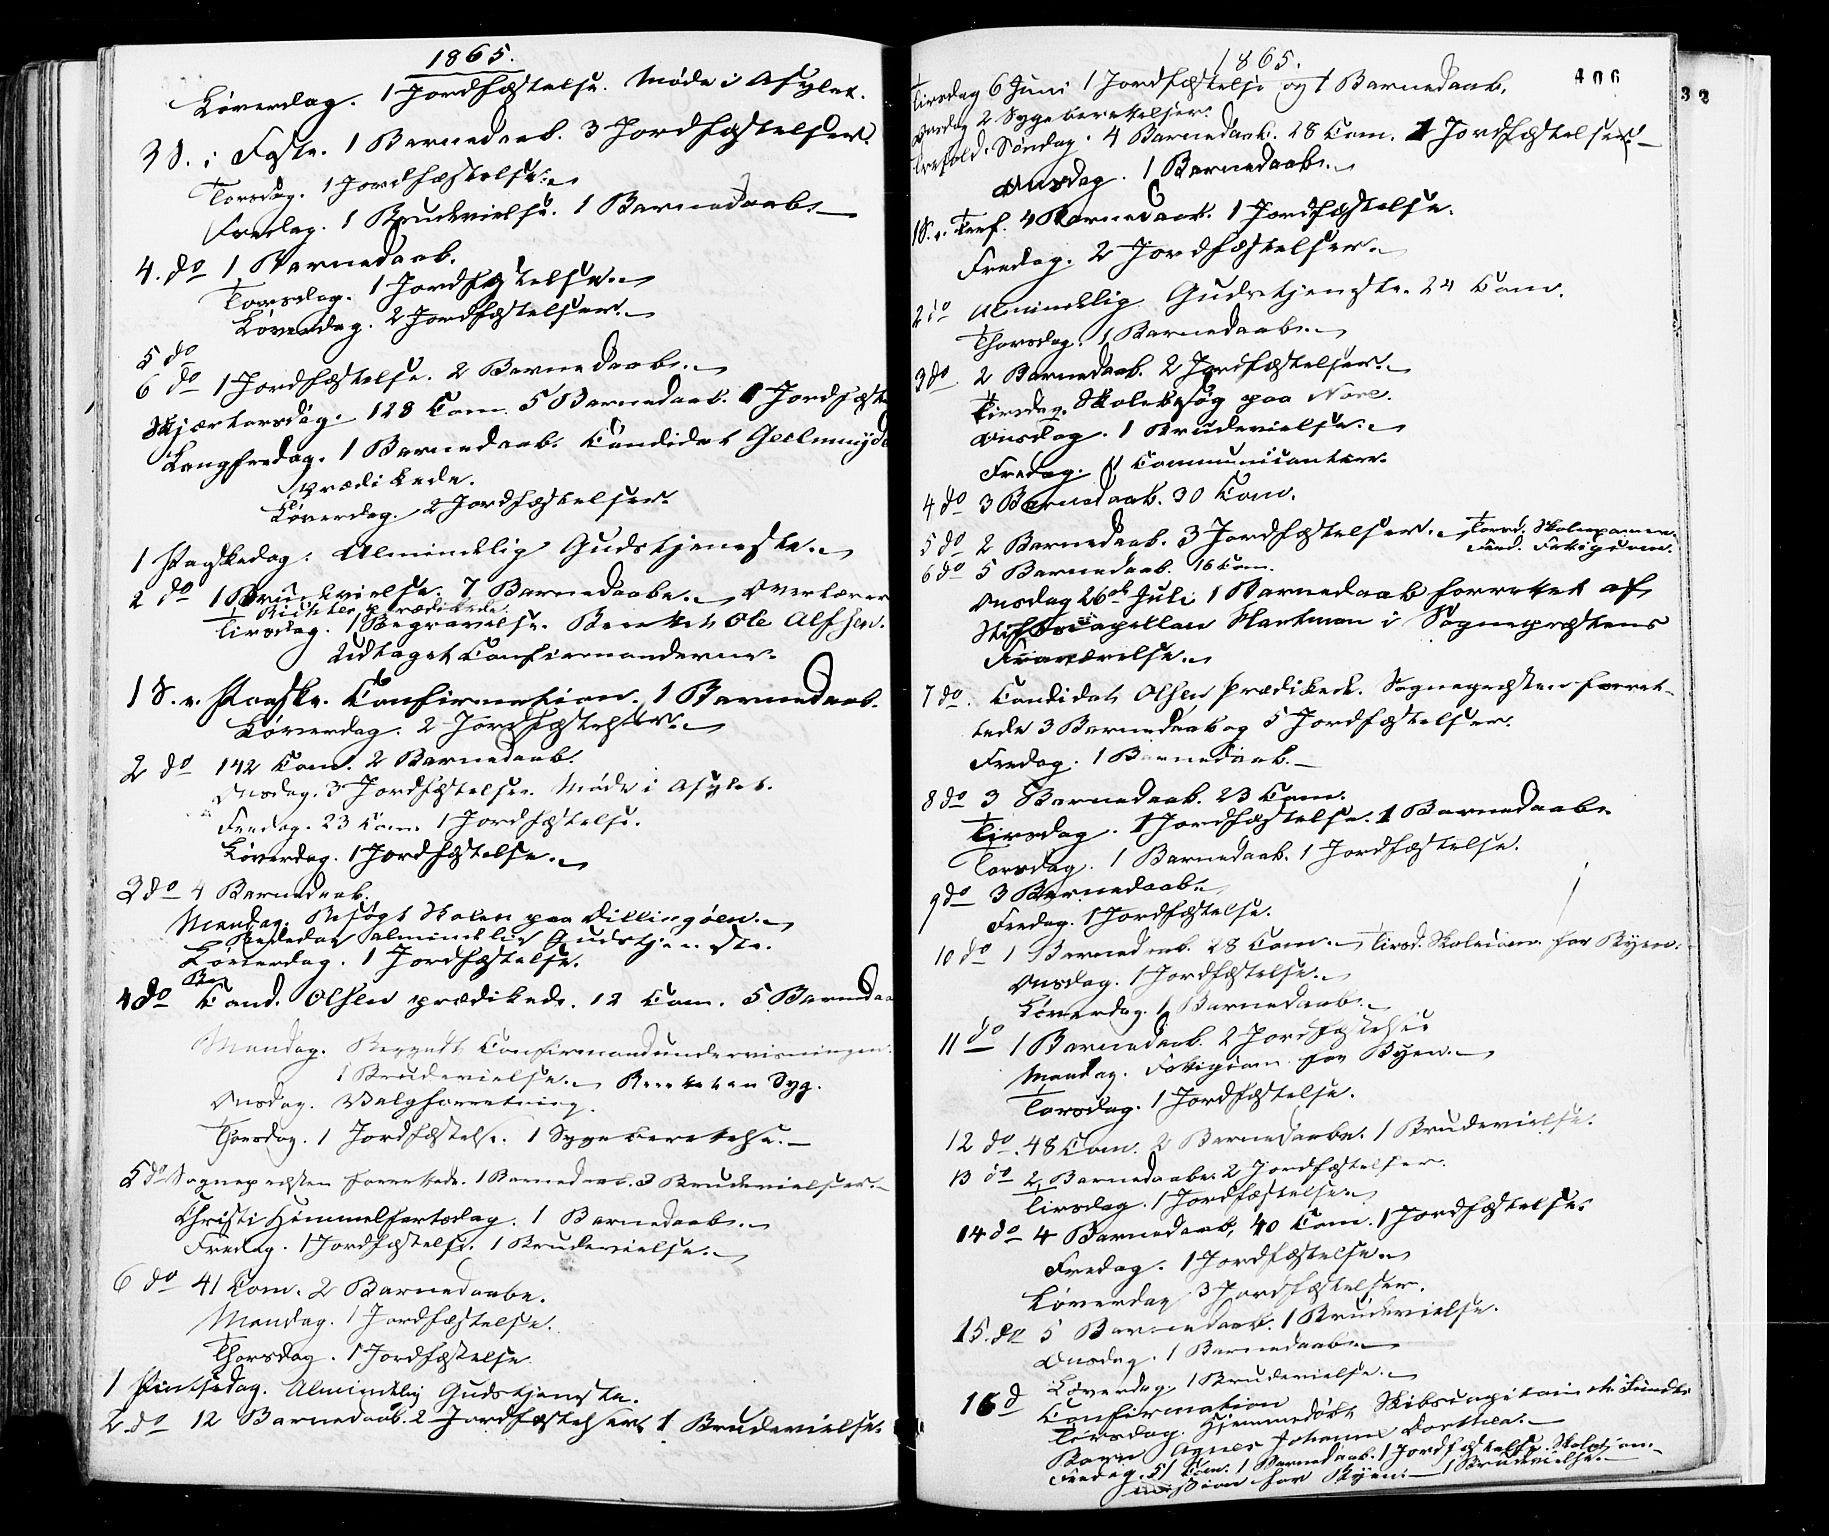 1865.
Løverdag. 1 Jordfæstelse. Møde i Asylet.
3 S. i Faste. 1 Barnedaab. 3 Jordfæstelser.
Torsdag. 1 Jordfæstelse.
Fredag. 1 Brudevielse. 1 Barnedaab.
4. do 1 Barnedaab.
Torsdag. 1 Jordfæstelse.
Løverdag. 2 Jordfæstelser.
5 do
6 do 1 Jordfæstelse. 2 Barnedaab.
Skjærtorsdag. 128 Com. 5 Barnedaab. 1 Jordfæste
Langfredag. 1 Barnedaab. Candidat Geelmuyde
prædikede.
Løverdag. 2 Jordfæstelser.
1 Paaskedag. Almindelig Gudstjeneste.
2 do 1 Brudevielse. 7 Barnedaabe. Overlærer
Richter prædikede.
Tirsdag. 1 Begravelse. Berettet Ole Alfsen.
Udtaget Confirmanderne.
1 S. e. Paaske. Confirmation. 1 Barnedaab.
Løverdag. 2 Jordfæstelser.
2 do 142 Com. 2 Barnedaab.
Onsdag. 3 Jordfæstelser. Møde i Asylet.
Fredag. 23 Com. 1 Jordfæstelse.
Løverdag. 1 Jordfæstelse.
3 do 4 Barnedaab.
Mandag. Besøgt Skolen paa Dillingøen.
Bededag almindelig Gudstjeneste.
Løverdag. 1 Jordfæstelse.
4 do Cand. Olsen prædikede. 12 Com. 5 Barnedaa
Mandag. Begyndt Confirmandundervisningen.
1 Brudevielse. Berettet en Syg.
Onsdag. Valgforretning.
Thorsdag. 1 Jordfæstelse. 1 Sygeberettelse.
5 do Sognepræsten forrettede. 1 Barnedaab. 3 Brudevielser.
Christi Himmelfartsdag. 1 Barnedaab.
Fredag. 1 Jordfæstelse. 1 Brudevielse.
6 do 41 Com. 2 Barnedaabe.
Mandag. 1 Jordfæstelse.
Thorsdag. 1 Jordfæstelse
1 Pintsedag. Almindelig Gudstjeneste.
2 do 12 Barnedaab. 2 Jordfæstelser. 1 Brudevielse.
1865.
406
Tirsdag 6 Juni 1 Jordfæstelse og 1 Barnedaab.
Onsdag 2 Sygeberettelser.
Trefold. Søndag. 4 Barnedaab. 28 Com. 1 Jordfæstelser.
Onsdag. 1 Barnedaab.
1 S. e. Tref. 4 Barnedaab. 1 Jordfæstelse.
Fredag. 2 Jordfæstelser.
2 do Almindelig Gudstjeneste. 24 Com.
Thorsdag. 1 Barnedaab.
3 do 2 Barnedaab. 2 Jordfæstelser.
Tirsdag. Skolebesøg paa
Onsdag. 1 Brudevielse.
Fredag. Communicantere.
4 do 3 Barnedaab. 30 Com.
5 do 2 Barnedaab. 3 Jordfæstelser.
6 do 5 Barnedaab. 16 Com.
Onsdag 26de Juli 1 Barnedaab forrettet af
Stiftscapellan Hartman i Sognepræstens
Fraværelse.
7 do. Candidat Olsen Prædikede. Sognepræsten forret-
tede 3 Barnedaab og 5 Jordfæstelser.
Fredag. 1 Barnedaab.
8 do 3 Barnedaab. 23 Com.
Tirsdag. 1 Jordfæstelse. 1 Barnedaab.
Torsdag. 1 Barnedaab. 1 Jordfæstelse.
9 do 3 Barnedaab.
Fredag. 1 Jordfæstelse.
10 do 1 Barnedaab. 28 Com. Tirsd. Skolecom. for Byen.
Onsdag. 1 Jordfæstelse.
Løverdag. 1 Barnedaab.
11 do 1 Barnedaab. 2 Jordfæstelser
Mandag. Fattigcom. for Byen.
Torsdag. 1 Jordfæstelse.
12 do. 48 Com. 2 Barnedaabe. 1 Brudevielse.
13 do 2 Barnedaabe. 2 Jordfæstelser.
Tirsdag. 1 Jordfæstelse.
14 do 4 Barnedaab, 40 Com. 1 Jordfæstelse.
Fredag. 1 Jordfæstelse.
Løverdag 3 Jordfæstelser.
15. do 5 Barnedaab. 1 Brudevielse.
Onsdag. 1 Barnedaab.
Løverdag. 1 Brudevielse.
16 d Confirmation
Tirsdag. Hjemmedøbt Skibscapitain
Barn Agnes Johanne Dorthea.
Fredag. 51 Com. 1 Barnedaab. 1 Jordfæstelse. Skolecom-
mission for Byen. 1 Brudevielse.